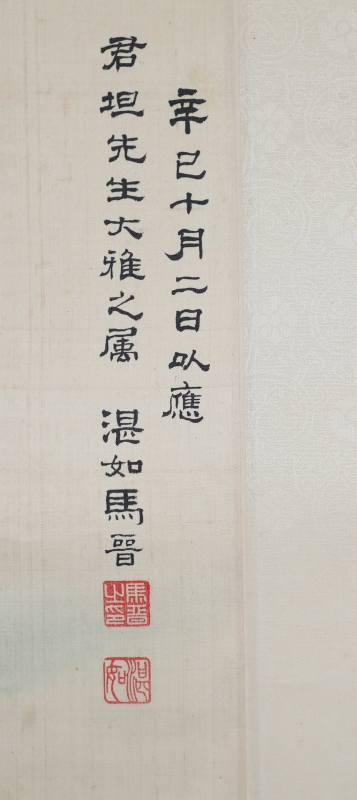 辛巳十月二日以應
君坦先生大雅之属 湛如馬晉
馬晉之印
湛如